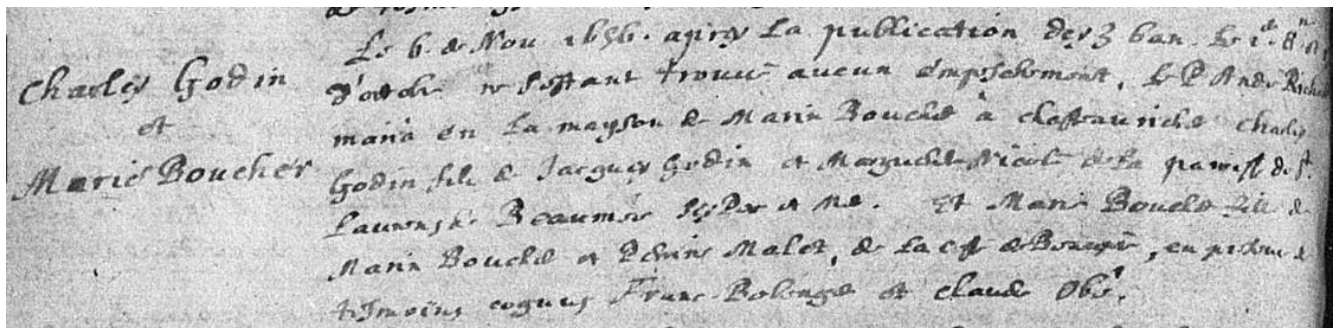 Charles Godin
et
Marie Boucher
Le 6 de Nou 1656. apres La publication des 3 ban. Le 1
d'octob ne sestant trouué aucun empeschement, Le P Andre Richar
maria en La mayson de Marin Bouché à chasteauriché charles
Godin fils de Jacques Godin et Marguerite Nicole de la paroisse de St.
Laurens de Beaumér ses Per et Me. Et Marie Bouché fille de
Marin Bouché et Perine Malet, de La coste de Beaupré, en presence de
tesmoins cognus Franc Belenge et claude Obé.